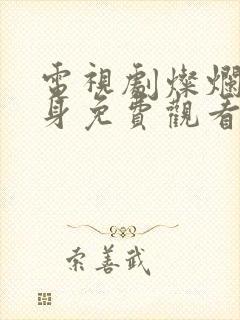 電視劇燦爛
身免費觀看
索善武